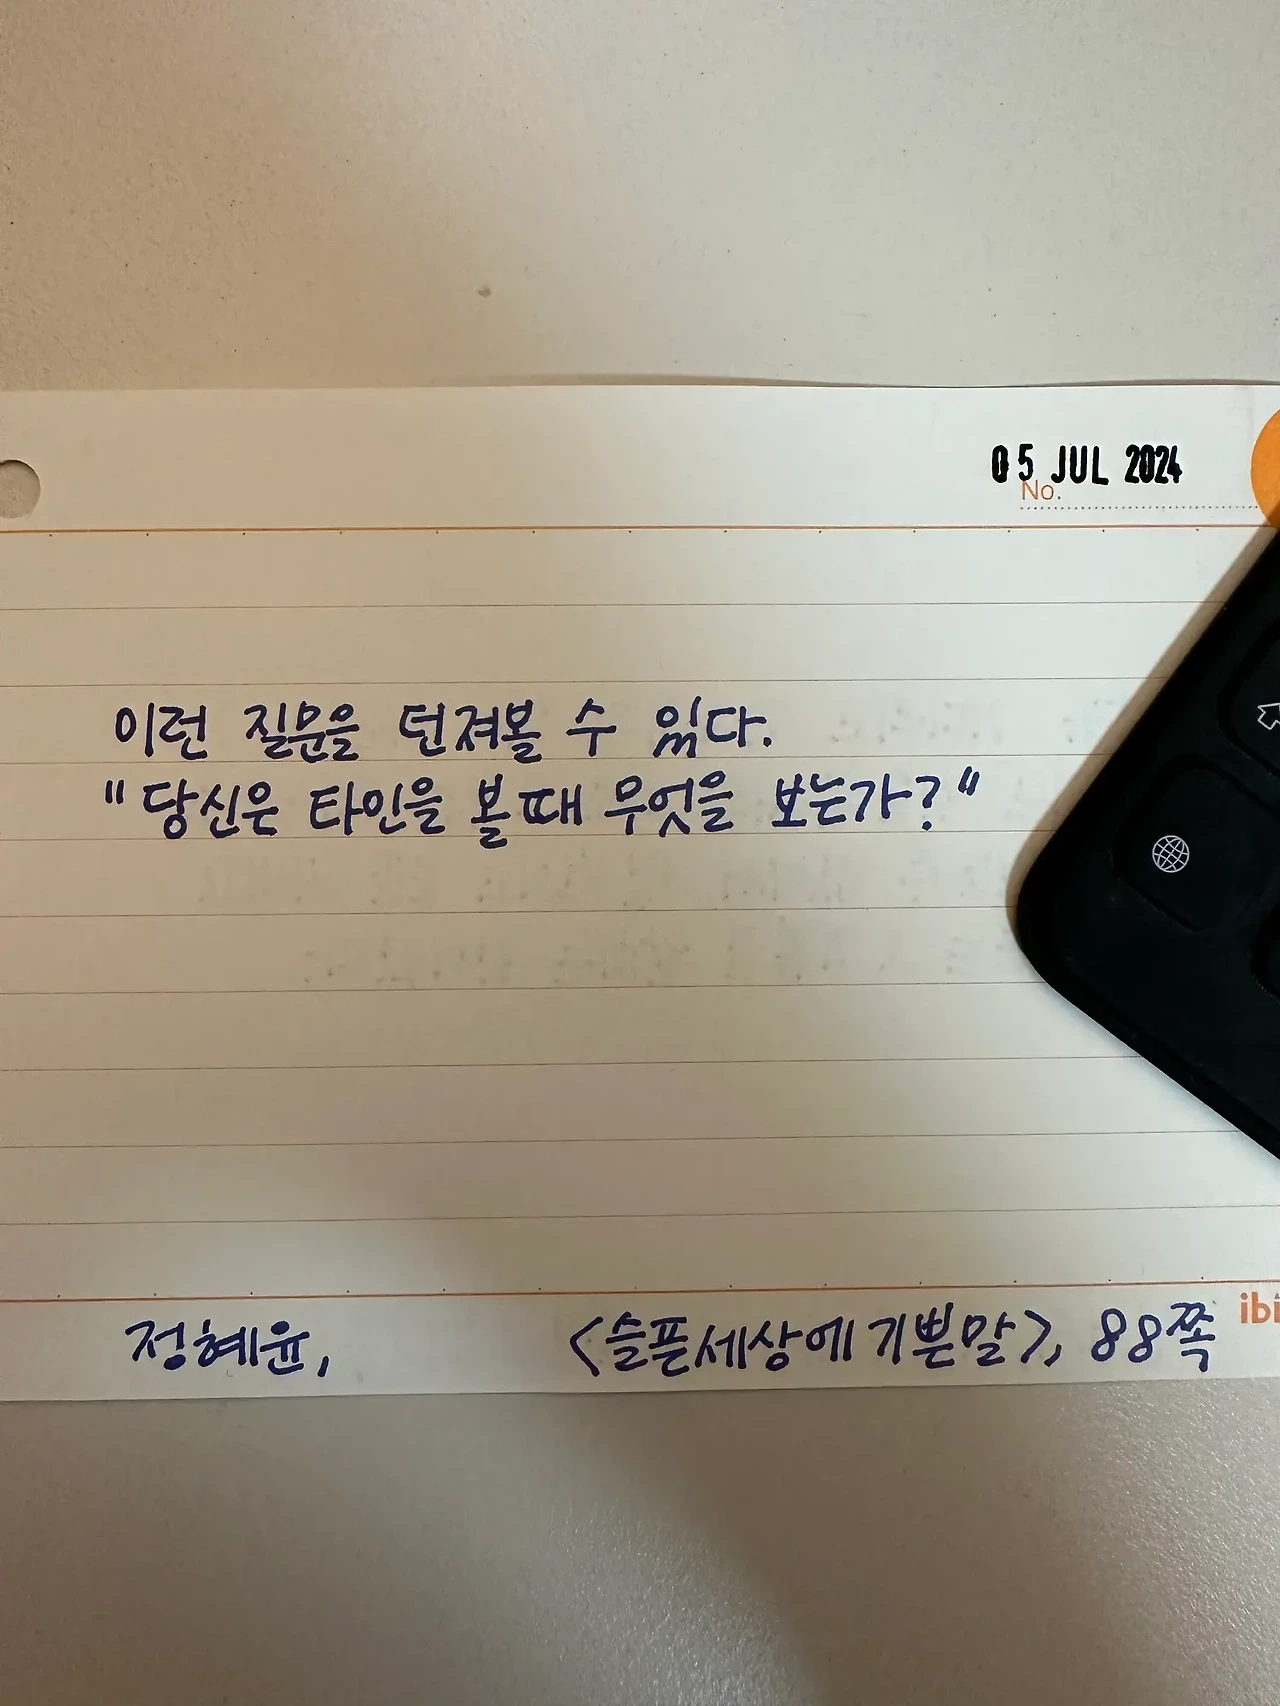 05 JUL 2024
No.
이런 질문을 던져볼 수 있다.
"당신은 타인을 볼때 무엇을 보는가?"
정혜윤, <슬픈세상에 기쁜말>, 88쪽